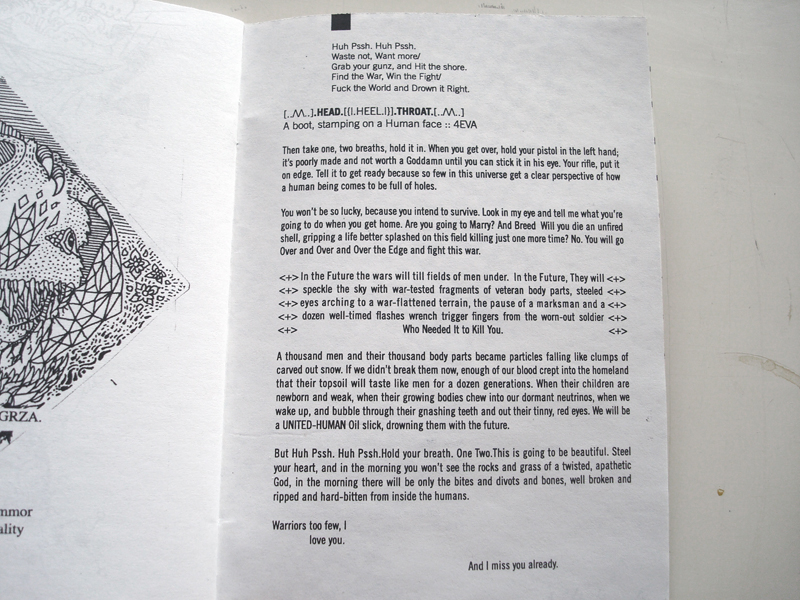 Huh Pssh. Huh Pssh.
Waste not, Want more/
Grab your gunz, and Hit the shore.
Find the War, Win the Fight/
Fuck the World and Drown it Right.
[../\/\..].HEAD.[{(I.HEEL.I)}].THROAT.[../\/\..]
A boot, stamping on a Human face :: 4EVA
Then take one, two breaths, hold it in. When you get over, hold your pistol in the left hand;
it's poorly made and not worth a Goddamn until you can stick it in his eye. Your rifle, put it
on edge. Tell it to get ready because so few in this universe get a clear perspective of how
a human being comes to be full of holes.
You won't be so lucky, because you intend to survive. Look in my eye and tell me what you're
going to do when you get home. Are you going to Marry? And Breed Will you die an unfired
shell, gripping a life better splashed on this field killing just one more time? No. You will go
Over and Over and Over the Edge and fight this war.
<+> In the Future the wars will till fields of men under. In the Future, They will <+>
<+> speckle the sky with war-tested fragments of veteran body parts, steeled <+>
<+> eyes arching to a war-flattened terrain, the pause of a marksman and a <+>
<+> dozen well-timed flashes wrench trigger fingers from the worn-out soldier <+>
<+> Who Needed It to Kill You. <+>
A thousand men and their thousand body parts became particles falling like clumps of
carved out snow. If we didn't break them now, enough of our blood crept into the homeland
that their topsoil will taste like men for a dozen generations. When their children are
newborn and weak, when their growing bodies chew into our dormant neutrinos, when we
wake up, and bubble through their gnashing teeth and out their tinny, red eyes. We will be
a UNITED-HUMAN Oil slick, drowning them with the future.
But Huh Pssh. Huh Pssh.Hold your breath. One Two.This is going to be beautiful. Steel
your heart, and in the morning you won't see the rocks and grass of a twisted, apathetic
God, in the morning there will be only the bites and divots and bones, well broken and
ripped and hard-bitten from inside the humans.
Warriors too few, I
love you.
And I miss you already.
GRZA.
mmor
ality